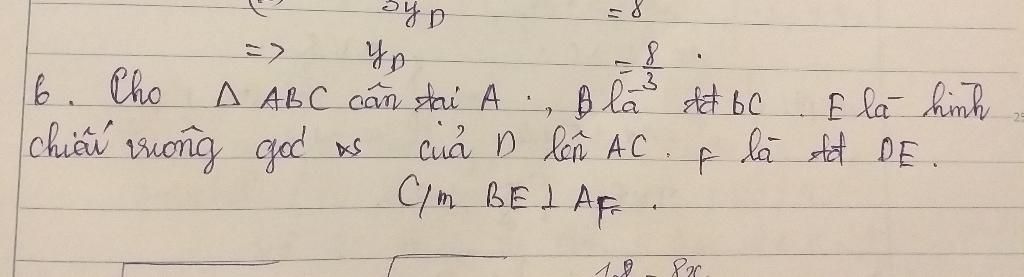 3y_D = 8
=> y_D = 8/3 .
6. Cho Δ ABC cân tại A ., D là tđ BC . E là hình
chiếu vuông góc của D lên AC . F là tđ DE .
C/m BE ⊥ AF .